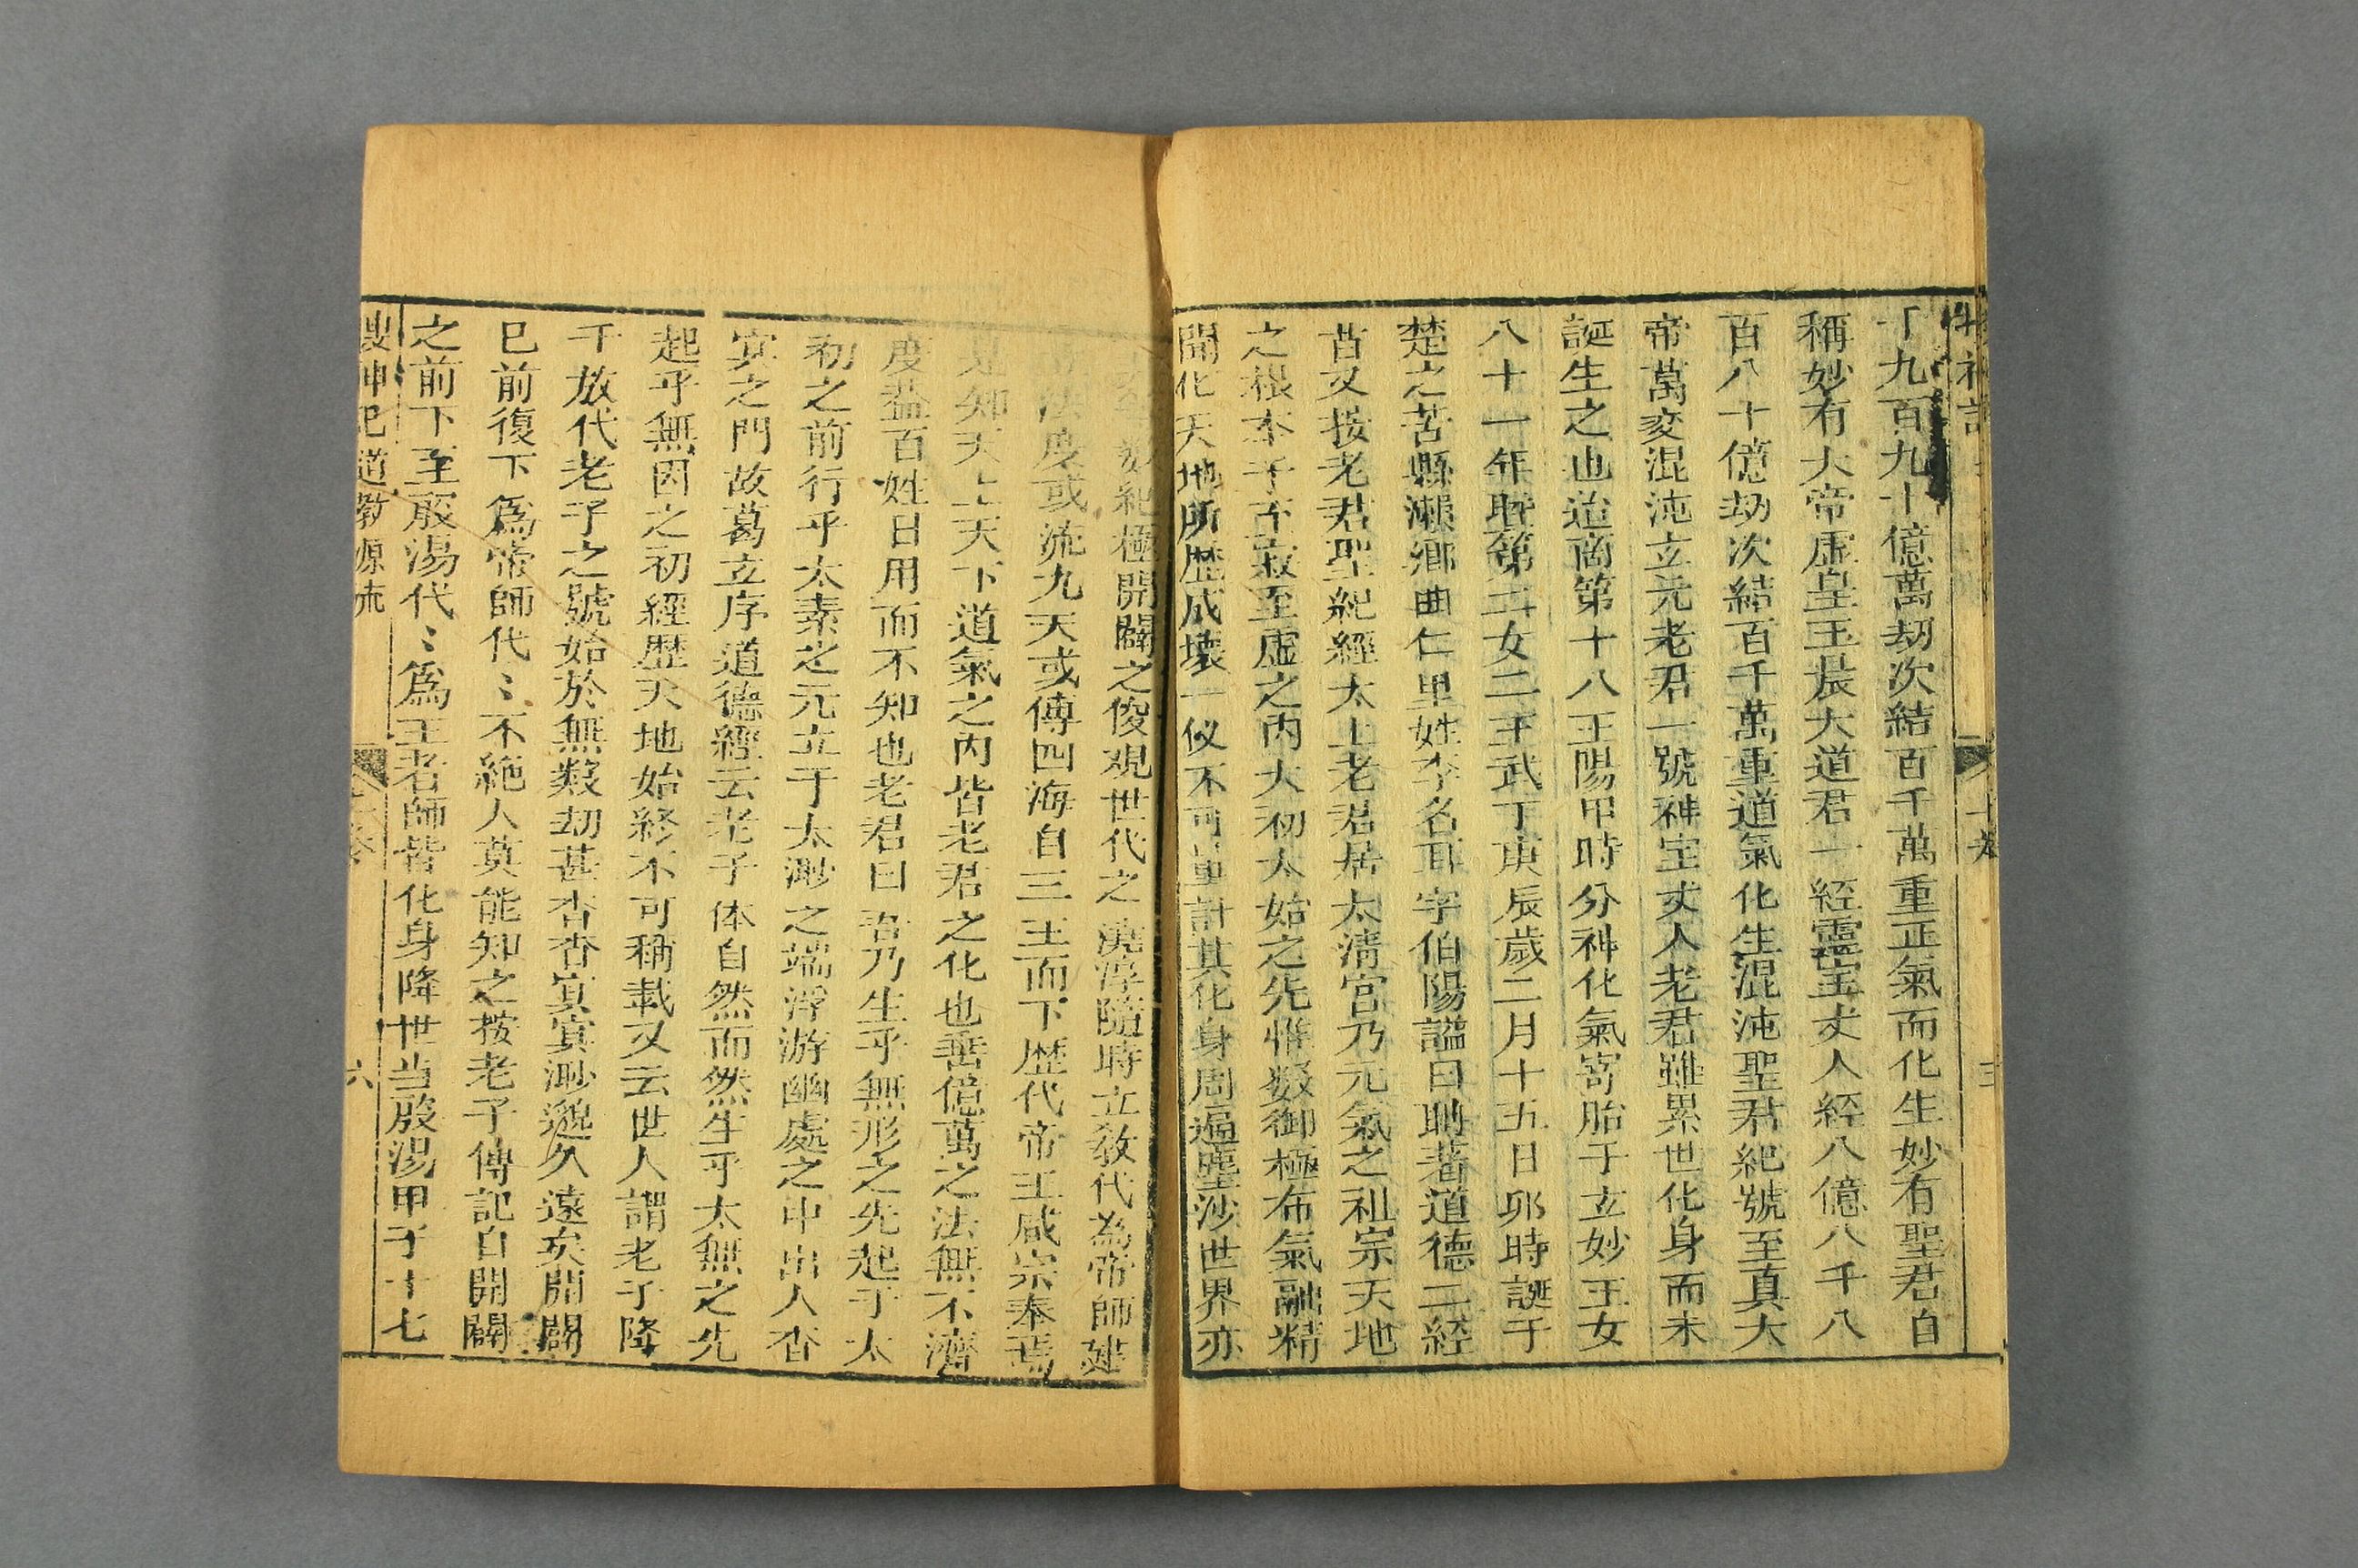 九百九十億萬刼次結百千萬重正氣而化生妙有聖君自
稱妙有大帝虛皇玉晨大道君一經靈宝丈人經八億八千八
百八十億刼次結百千萬重道氣化生混沌聖君紀號至真大
帝萬変混沌玄元老君一號神宝丈人老君雖累世化身而未
誕生之迹商第十八王陽甲時分神化氣寄胎于玄妙玉女
八十一年第二女二王武丁庚辰歲二月十五日卯時誕于
楚之苦縣瀨鄉曲仁里姓李名耳字伯陽謚曰聃著道德二經
又按老君聖紀經太上老君居太清宮乃元氣之祖宗天地
之根本于至寂至虛之內大初太始之先惟数御極布氣融精
開化天地所歷成壊不可量計其化身周遍塵沙世界亦
数紀極開闢之後观世代之澆淳隨時立教代為帝師建
法度或流九天或傳四海自三王而下歷代帝王咸宗奉焉
知天上天下道氣之內皆老君之化也垂億萬之法無不濟
度盖百姓日用而不知也老君曰吾乃生乎無形之先起于太
初之前行乎太素之元立于太渺之端浮游幽處之中出入杳
冥之門故葛玄序道德經云老子体自然而然生乎太無之先
起乎無因之初經歷天地始終不可稱載又云世人謂老子降
于放代老子之號始於無数刼甚杳杳冥冥渺邈久遠矣開闢
已前復下爲帝師代〻不絶人莫能知之按老子傳記自開闢
之前下至殷湯代〻爲王者師皆化身降世当殷湯甲子十七
搜神記道教源流
六